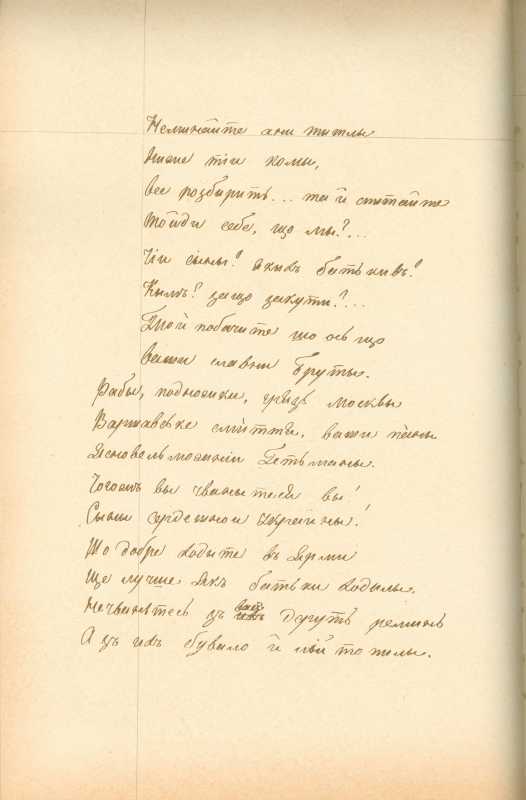 Неминайте ани титлы
Ниже тіи комы,
все розберить... та й спитайте
Тойди себе, що мы?...
Чіи сыны? якихъ батькивъ?
Кымъ? за що закути?...
Тной побачите що ось що
ваши славни Бруты.
Рабы, подножки, грязь Москвы
Варшавське смиття, ваши паны
Ясновельможніи Гетьманы.
Чогожъ вы чванытеся вы!
Сыны сердешнои Украйины!
Що добре ходыте въ Ярми
Ще лучше якъ батьки ходылы.
Нечваньтесь зъ васъ деруть реминь
А зъ ихъ бувало й лий топилы.